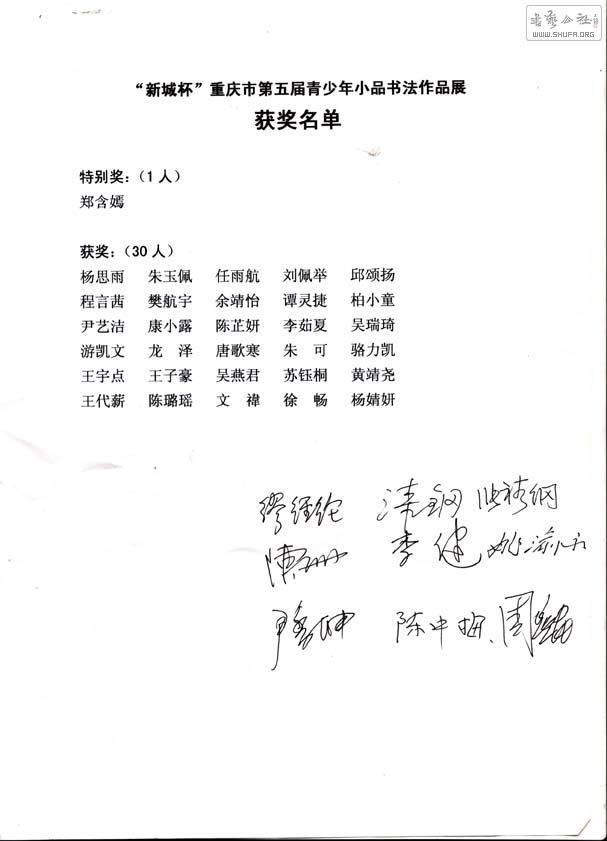 书艺公社
WWW.SHUFA.ORG
“新城杯”重庆市第五届青少年小品书法作品展
获奖名单
特别奖：（1人）
郑含嫣
获奖：（30人）
杨思雨 朱玉佩 任雨航 刘佩举 邱颂扬
程言茜 樊航宇 余靖怡 谭灵捷 柏小童
尹艺洁 康小露 陈芷妍 李茹夏 吴瑞琦
游凯文 龙泽 唐歌寒 朱可 骆力凯
王宇点 王子豪 吴燕君 苏钰桐 黄靖尧
王代薪 陈璐瑶 文禕 徐畅 杨婧妍
缪经纶
李健
陈中梅